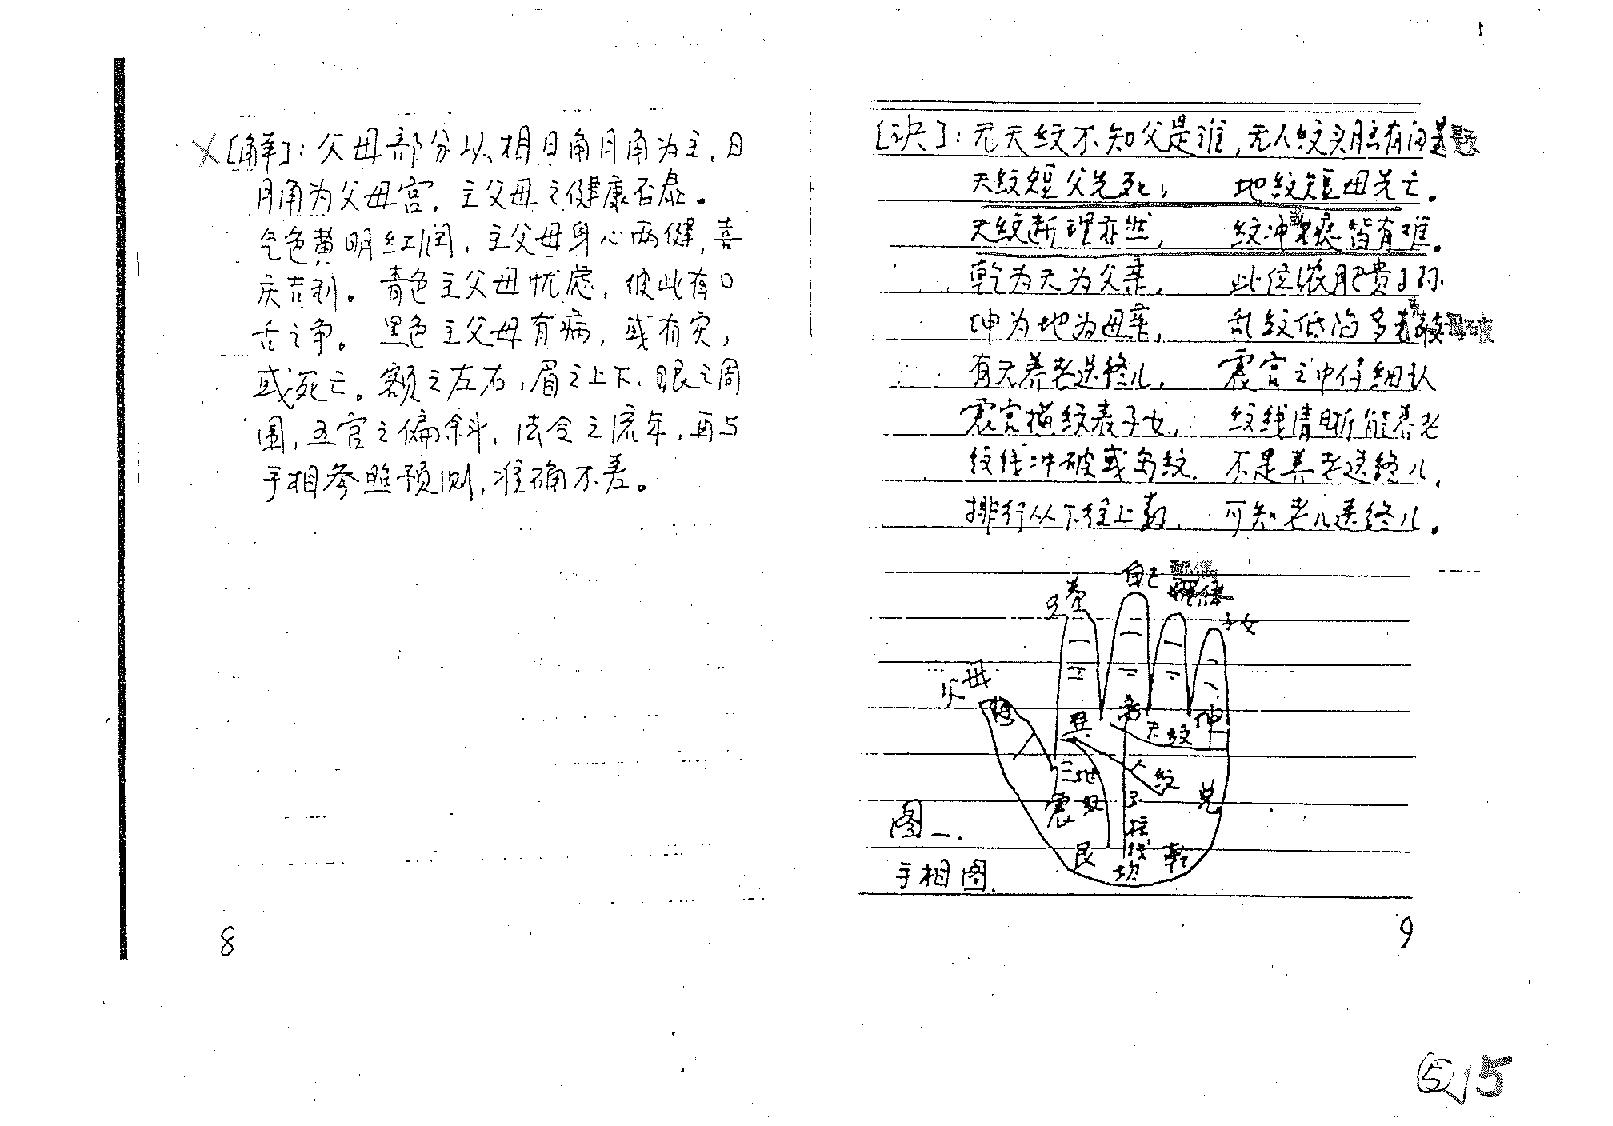 [解]：父母部分以相日角月角为主，日
月角为父母宫，主父母之健康否虑。
气色黄明红润，主父母身心两健，喜
庆吉利。青色主父母忧虑，彼此有口
舌之争。黑色主父母有病，或有灾，
或死亡。额之左右，眉之上下，眼之周
围，五官之偏斜，法令之流年，再与
手相参照预测，准确不差。
8
[诀]：无天纹不知父是谁，无人纹
天纹短父先死，地纹短母先亡。
天纹断理亦然，纹冲 皆有难。
乾为天为父亲，此位 肥贵
坤为地为母亲，乱纹低陷多
有无养老送终儿，震宫之中仔细认
震宫横纹表子女，纹线清晰能养老
纹线冲破或岛纹，不是养老送终儿，
排行从下往上数，可知老几送终儿。
兄弟
自己
子女
父母
巽
离
天纹
坤
地纹
人纹
震
兑
玉柱线
艮
坎
乾
图一.
手相图.
9
⑤
15